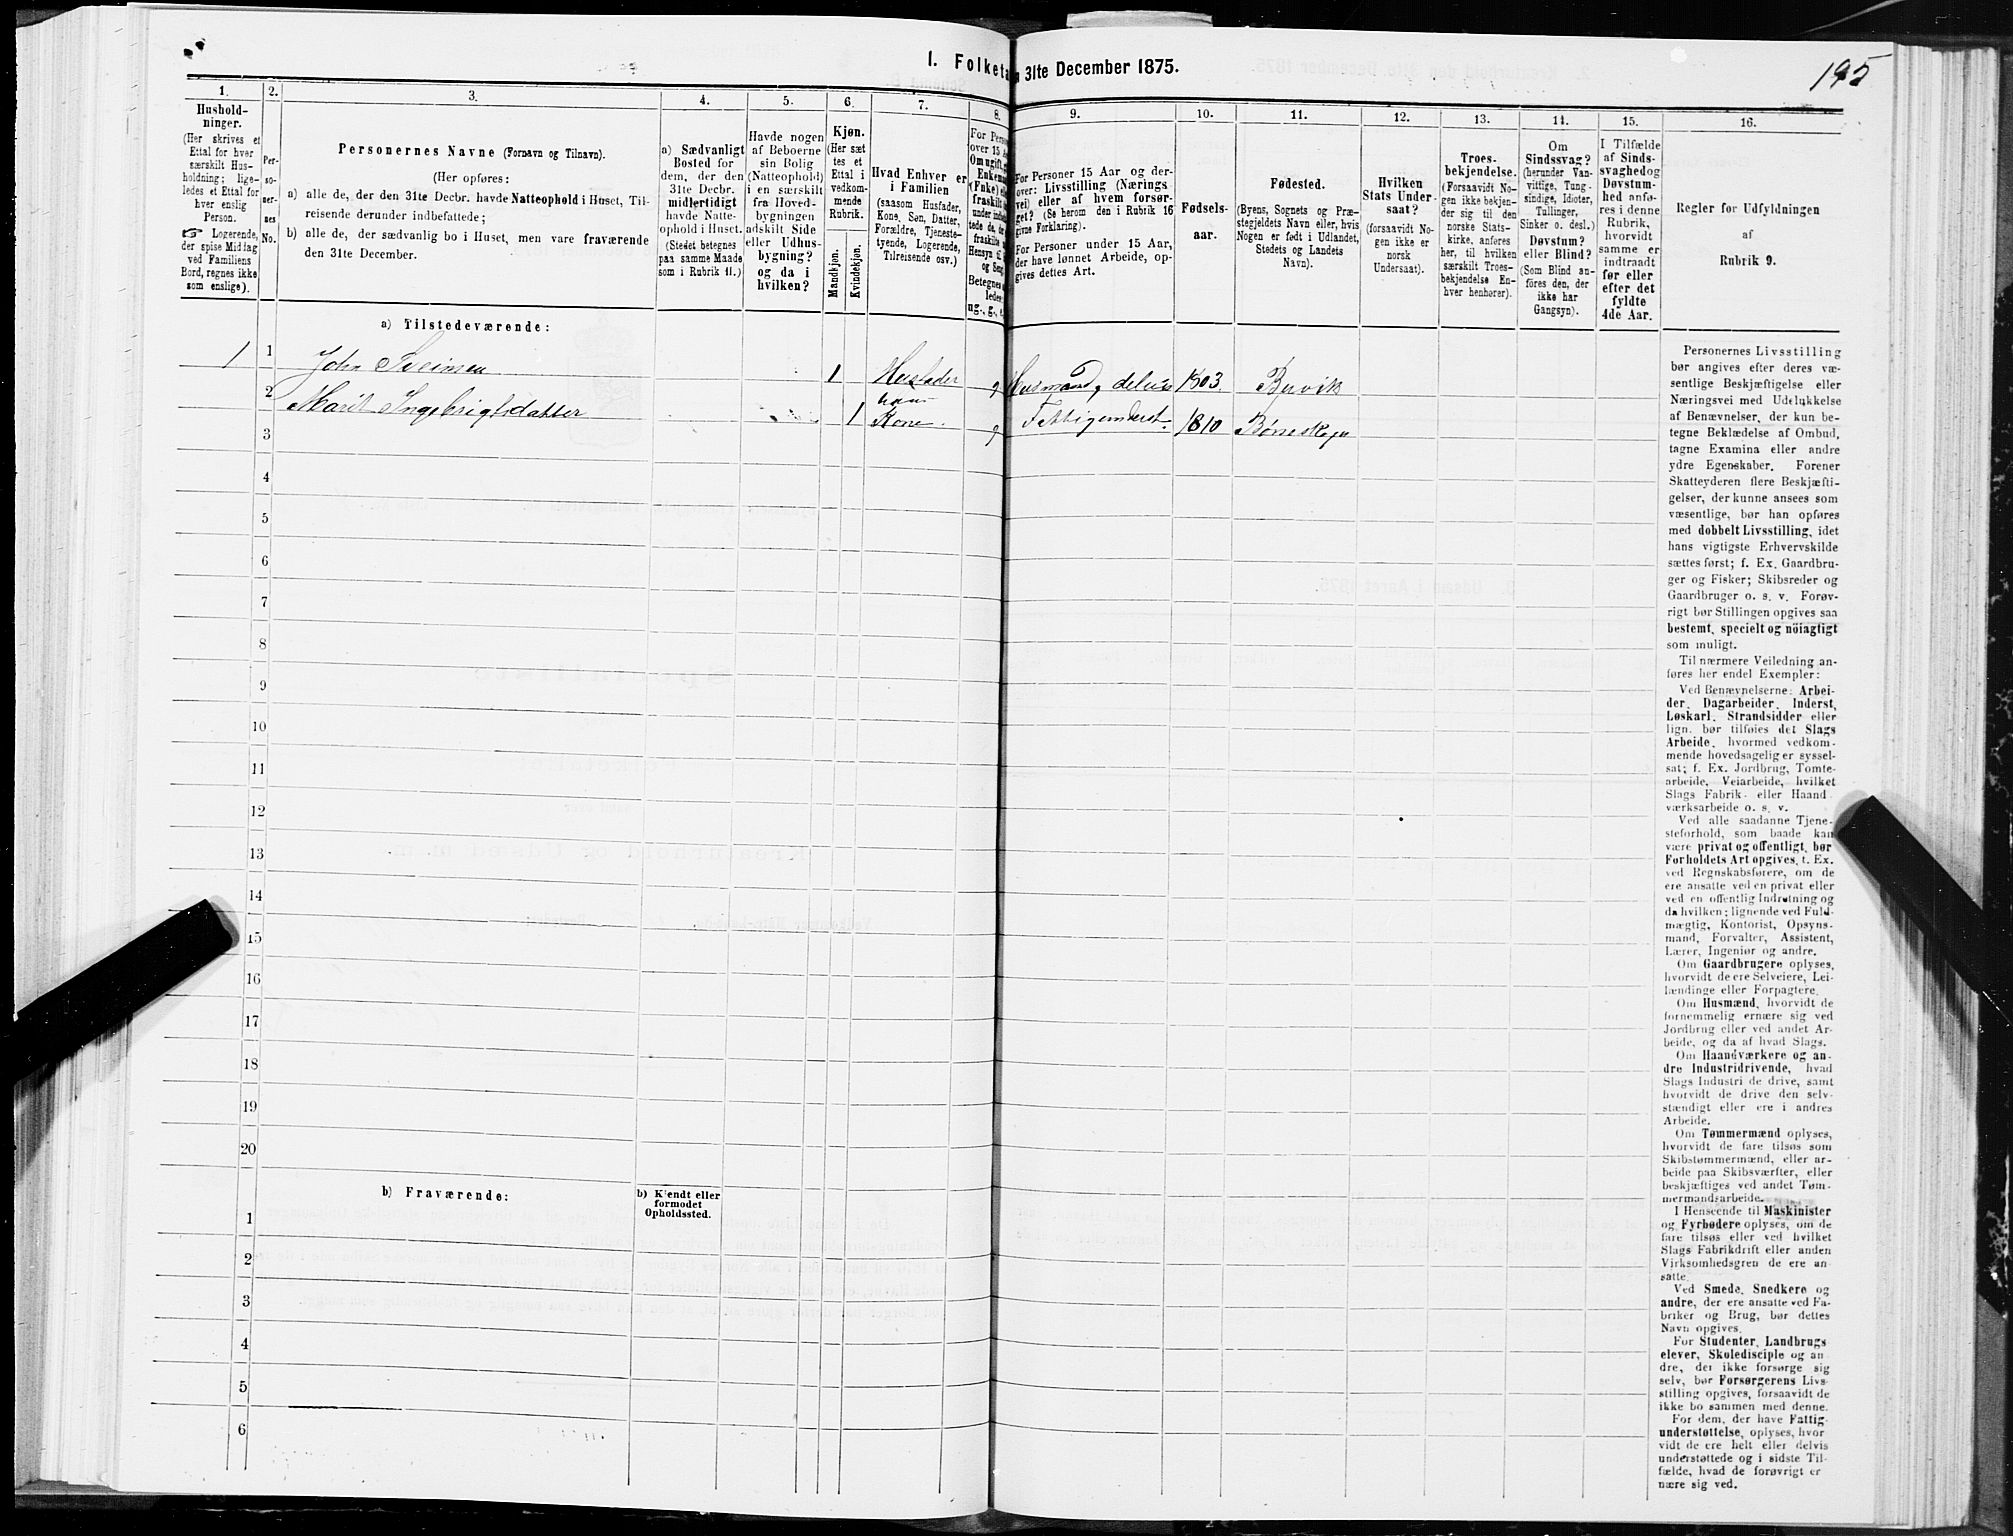 I. Folketæ
n 31te December 1875.
195
1.
2.
3.
4.
5.
6.
7.
8.
9.
10.
11.
12.
13.
14.
15.
16.
Hushold-
ninger.
(Her skrives et
Ettal for hver
særskilt Hus-
holdning; lige-
ledes et Ettal for
hver enslig
Person.
☞ Logerende,
der spise Middag
ved Familiens
Bord, regnes ikke
som enslige).
Per-
so-
ner-
nes
No.
Personernes Navne (Fornavn og Tilnavn).
(Her opføres:
a) alle de, der den 31te Decbr. havde Natteophold i Huset, Til-
reisende derunder indbefattede;
b) alle de, der sædvanlig bo i Huset, men vare fraværende
den 31te December.
a) Sædvanligt
Bosted for
dem, der den
31te Decbr.
midlertidigt
havde Natte-
ophold i Huset.
(Stedet betegnes
paa samme Maade
som i Rubrik 11.)
Havde nogen
af Beboerne
sin Bolig
(Natteophold)
i en særskilt
fra Hoved-
bygningen
adskilt Side
eller Udhus-
bygning?
og da i
hvilken?
Kjøn.
(Her sæt
tes et
Ettal i
vedkom-
mende
Rubrik.
Mandkjøn.
Kvindekjøn.
Hvad Enhver er
i Familien
(saasom Husfader,
Kone, Søn, Datter,
Forældre, Tjeneste-
tyende, Logerende,
Tilreisende osv.)
For Perso
over 15 A
Om ugift, g
Enkem
(Enke) ell
fraskilt
under indbe
tede de, d
fraskilte
Hensyn ti
og Seng
Betegnes
ledes
ug., g.,
For Personer 15 Aar og der-
over: Livsstilling (Nærings
vei) eller af hvem forsør-
get? (Se herom den i Rubrik 16
givne Forklaring).
For Personer under 15 Aar,
der have lønnet Arbeide, op-
gives dettes Art.
Fødsels-
aar.
Fødested.
(Byens, Sognets og Præ-
stegjeldets Navn eller, hvis
Nogen er født i Udlandet,
Stedets og Landets
Navn).
Hvilken
Stats Under-
saat?
(forsaavidt No-
gen ikke er
norsk
Undersaat).
Troes-
bekjendelse.
(Forsaavidt No-
gen ikke bekjen-
der sig til den
norske Stats-
kirke, anføres
her, til hvilken
særskilt Troes-
bekjendelse En-
hver henhører).
Om
Sindssvag?
(herunder Van-
vittige, Tung-
sindige, Idioter,
Tullinger,
Sinker o. desl.)
Døvstum?
eller Blind?
(Som Blind an-
føres den, der
ikke har
Gangsyn).
I Tilfælde
af Sinds-
svaghed og
Døvstum-
hed anfø-
res i denne
Rubrik,
hvorvidt
samme er
indtraadt
før eller
efter det
fyldte
4de Aar.
Regler for Udfyldningen
af
Rubrik 9.
a) Tilstedeværende:
1 1 John Sveinsen 1 Husfader g Husmand, delvis 1803. Bervik
2 Marit Ingebrigtsdatter 1 hans Kone. g Fattigunderst. 1810 Bøneskogn
3
4
5
6
7
8
9
10
11
12
13
14
15
16
17
18
19
20
b) Fraværende:
b) Kjendt eller
formodet
Opholdssted.
1
2
3
4
5
6
Personernes Livsstilling
bør angives efter deres væ-
sentlige Beskjæftigelse eller
Næringsvei med Udelukkelse
af Benævnelser, der kun be-
tegne Beklædelse af Ombud,
tagne Examina eller andre
ydre Egenskaber. Forener
Skatteyderen flere Beskjæfti-
gelser, der kunne ansees som
væsentlige, bør han opføres
med dobbelt Livsstilling, idet
hans vigtigste Erhvervskilde
sættes først; f. Ex. Gaardbru-
ger og Fisker; Skibsreder og
Gaardbruger o. s. v. Forøv-
rigt bør Stillingen opgives saa
bestemt, specielt og nöiagtigt
som muligt.
Til nærmere Veiledning an-
føres her endel Exempler:
Ved Benævnelserne: Arbei-
der, Dagarbeider, Inderst,
Løskarl, Strandsidder eller
lign. bør tilføies det Slags
Arbeide, hvormed vedkom-
mende hovedsagelig er syssel-
sat; f. Ex. Jordbrug, Tomte-
arbeide, Veiarbeide, hvilket
Slags Fabrik- eller Haand
værksarbeide o. s. v.
Ved alle saadanne Tjene-
steforhold, som baade kan
være privat og offentligt, bør
Forholdets Art opgives, f. Ex.
ved Regnskabsførere, om de
ere ansatte ved en privat eller
ved en offentlig Indretning og
da hvilken; lignende ved Fuld-
mægtig, Kontorist, Opsyns-
mand, Forvalter, Assistent,
Lærer, Ingeniør og andre.
Om Gaardbrugere oplyses,
hvorvidt de ere Selveiere, Lei-
lændinge eller Forpagtere.
Om Husmænd, hvorvidt de
fornemmelig ernære sig ved
Jordbrug eller ved andet Ar-
beide, og da af hvad Slags.
Om Haandværkere og an-
dre Industridrivende, hvad
Slags Industri de drive, samt
hvorvidt de drive den selv-
stændigt eller ere i andres
Arbeide.
Om Tømmermænd oplyses,
hvorvidt de fare tilsøs som
Skibstømmermænd, eller ar-
beide paa Skibsværfter, eller
beskjæftiges ved andet Tøm-
mermandsarbeide.
I Henseende til Maskinister
og Fyrbødere oplyses, om de
fare tilsøs eller ved hvilket
Slags Fabrikdrift eller anden
Virksomhedsgren de ere an-
satte.
Ved Smede, Snedkere og
andre, der ere ansatte ved Fa-
briker og Brug, bør dettes
Navn opgives.
For Studenter, Landbrugs
elever, Skoledisciple og an
dre, der ikke forsørge sig
selv, bør Forsørgerens Livs-
stilling opgives, forsaavidt de
ikke bo sammen med denne.
For dem, der have Fattig-
understøttelse, oplyses, hvor
vidt de ere helt eller delvis
understøttede og i sidste Til-
fælde, hvad de forøvrigt er
nære sig ved.